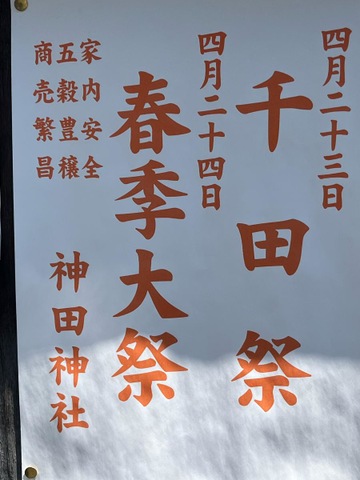 四月二十三日
千田祭
四月二十四日
春季大祭
家内安全
五穀豊穣
商売繁昌
神田神社